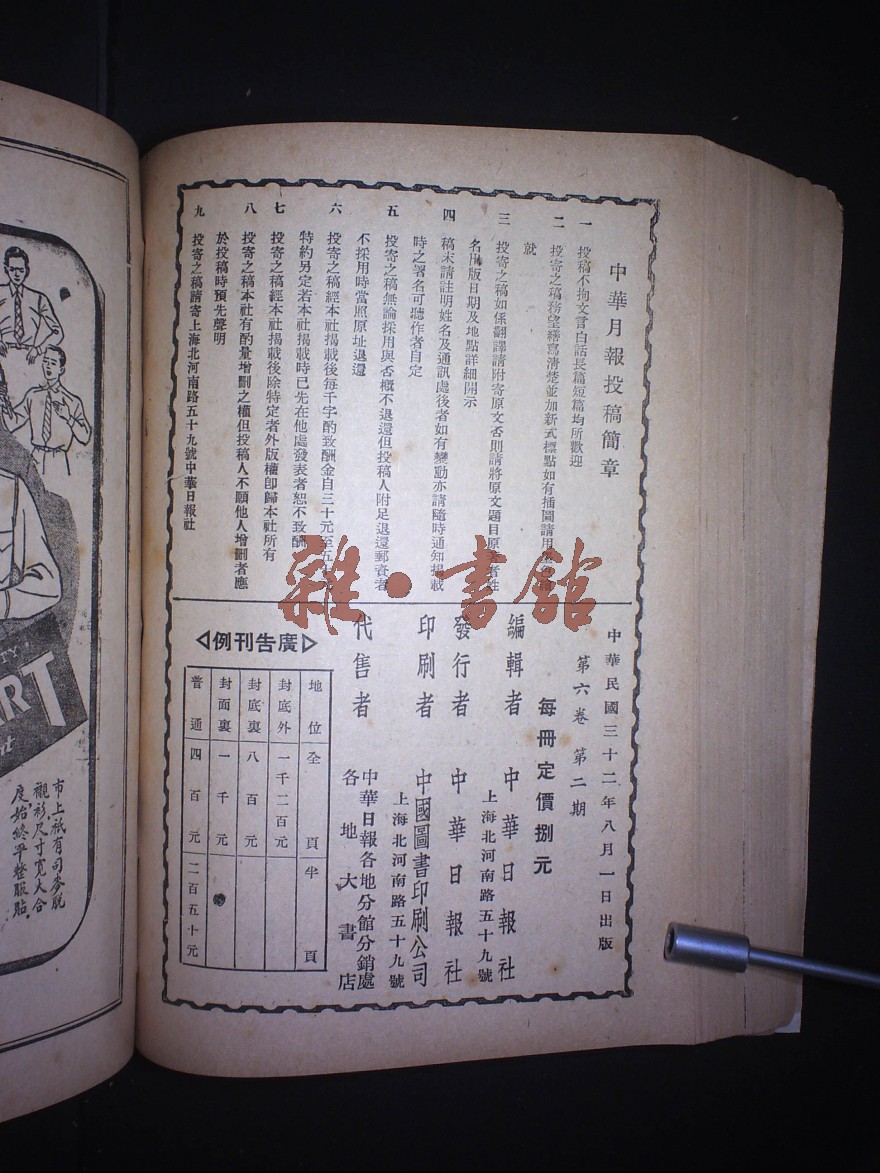 中華月報投稿簡章
一 投稿不拘文言白話長篇短篇均所歡迎
二 投寄之稿務望繕寫清楚並加新式標點如有插圖請用
就
三 投寄之稿如係翻譯請附寄原文否則請將原文題目原 者姓
名出版日期及地點詳細開示
四 稿末請註明姓名及通訊處後者如有變動亦請隨時通知揭載
時之署名可聽作者自定
五 投寄之稿無論採用與否概不退還但投稿人附足退還郵資者
不採用時當照原址退還
六 投寄之稿經本社揭載後每千字酌致酬金自三十元至五十元
特約另定若本社揭載時已先在他處發表者恕不致酬
七 投寄之稿經本社揭載後除特定者外版權卽歸本社所有
八 投寄之稿本社有酌量增刪之權但投稿人不願他人增刪者應
於投稿時預先聲明
九 投寄之稿請寄上海北河南路五十九號中華日報社
中華民國三十二年八月一日出版
第六卷 第二期
每冊定價捌元
編輯者 中華日報社
上海北河南路五十九號
發行者 中華日報社
印刷者 中國圖書印刷公司
上海北河南路五十九號
代售者 中華日報各地分館分銷處
各地大書店
廣告刊例
地位 全頁 半頁
封底外 一千二百元
封底裏 八百元
封面裏 一千元
普通 四百元 二百五十元
雜·書館
TY
ART
市上祇有司麥脫
襯衫,尺寸寬大合
度,始終平整服貼。